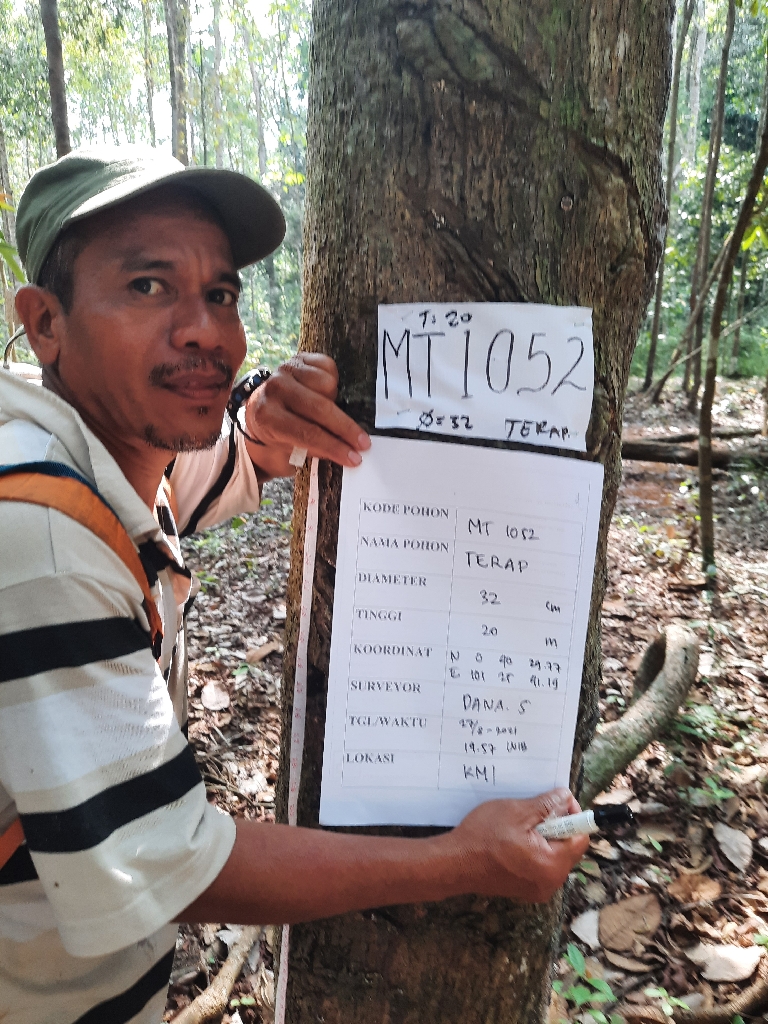 T: 20
MT1052
Ø=32 TERAP
KODE POHON MT 1052
NAMA POHON TERAP
DIAMETER 32 cm
TINGGI 20 m
KOORDINAT N 0 40 29.77
E 101 25 41.19
SURVEYOR DANA. S
TGL/WAKTU 27/8-2021
WIB
LOKASI KMI